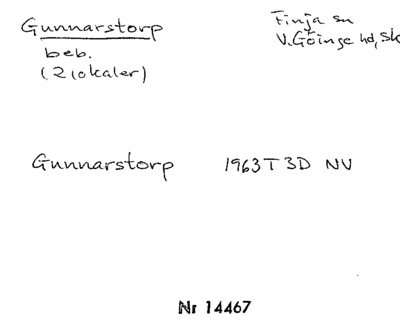 Gunnarstorp
beb.
(2 lokaler)
Finja sn
V. Göinge hd, Sk
Gunnarstorp 1963 T 3D NV
Nr 14467